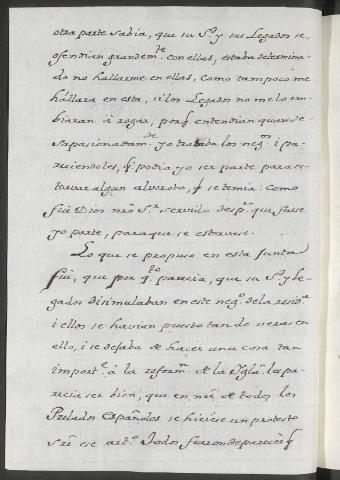 otra parte sabia, que su S.ᵈ y sus Legados se
ofendian grandem.ᵗᵉ con ellas, estaba determina-
do no hallarme en ellas, como tampoco me
hállara en esta, si los Legados no me lo em-
biaran à rogar, porq̃ entendian quan de-
sapasionadam.ᵗᵉ yo trataba los neg.ˢ i pa-
reciendoles, q̃ podia yo ser parte para es-
torvar algun alvoroto, q̃ se temia: como
fuè Dios nrõ S.ʳ servido desp.ˢ que fuese
yo parte, para que se estorvase.
Lo que se propuso en esta Junta
fuè, que por q.ᵗᵒ parecia, que su S.ᵈ y Le-
gados disimulaban en este neg.º de la resid.ᵃ
i ellos se havian puesto tan de veras en
ello, i se dejaba de hacer una cosa tan
import.ᵉ à la reform.ⁿ de la Iglã. les pa-
recia ser bien, que en nrẽ de todos los
Prelados Españoles se hiciese un protesto
srẽ ese art.º Todos fueron de parecer q̃